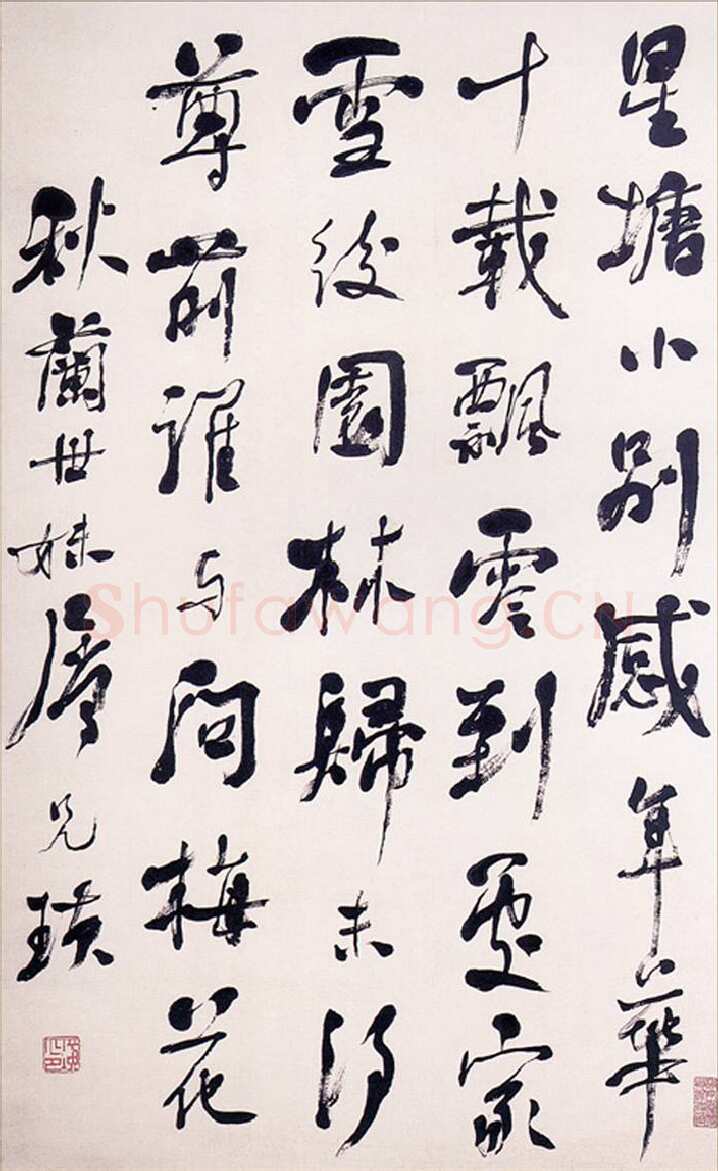 星塘小別感年華
十載飄零到處家
雪後園林歸未得
尊前誰与問梅花
秋蘭世妹屬 兄璜
Shufawang.CN